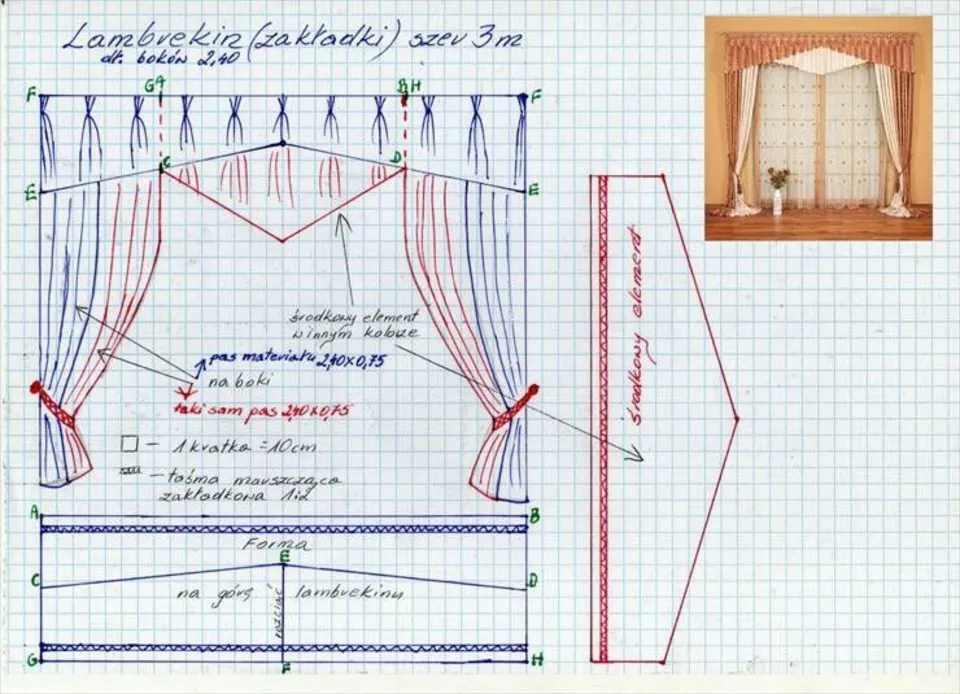 Lambrekin (zakładki) szer 3m
dł. boków 2,40
F G A B H F
C D
E E
środkowy element
w innym kolorze
pas materiału 2,40x0,75
na boki
taki sam pas 2,40x0,75
– 1 kratka = 10cm
– taśma marszcząca
zakładkowa 1:2
A B
Forma
E
C D
na górę lambrekinu
G F H
środkowy element